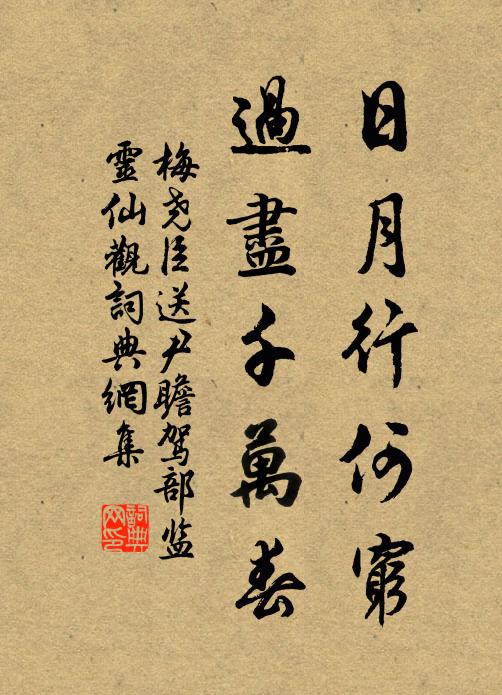 日月行何窮
過盡千萬春
梅尧臣送尹瞻駕部监
靈仙觀詞典網集
詞典网印